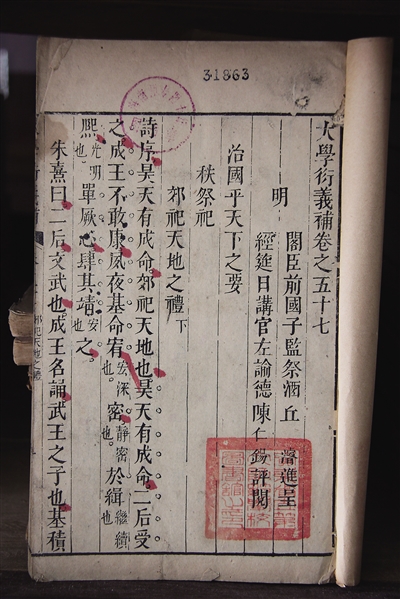 31863
大學衍義補卷之五十七
明
閣臣前國子監祭酒丘 濬進呈
經筵日講官左諭德陳仁錫評閱
治國平天下之要
秩祭祀
郊祀天地之禮下
詩序昊天有成命郊祀天地也昊天有成命二后受
之成王不敢康夙夜基命宥宏深也密靜密也於緝繼續也
熙光明也單厥心肆其靖安也之
朱熹曰二后文武也成王名誦武王之子也基積
郊祀天地之禮